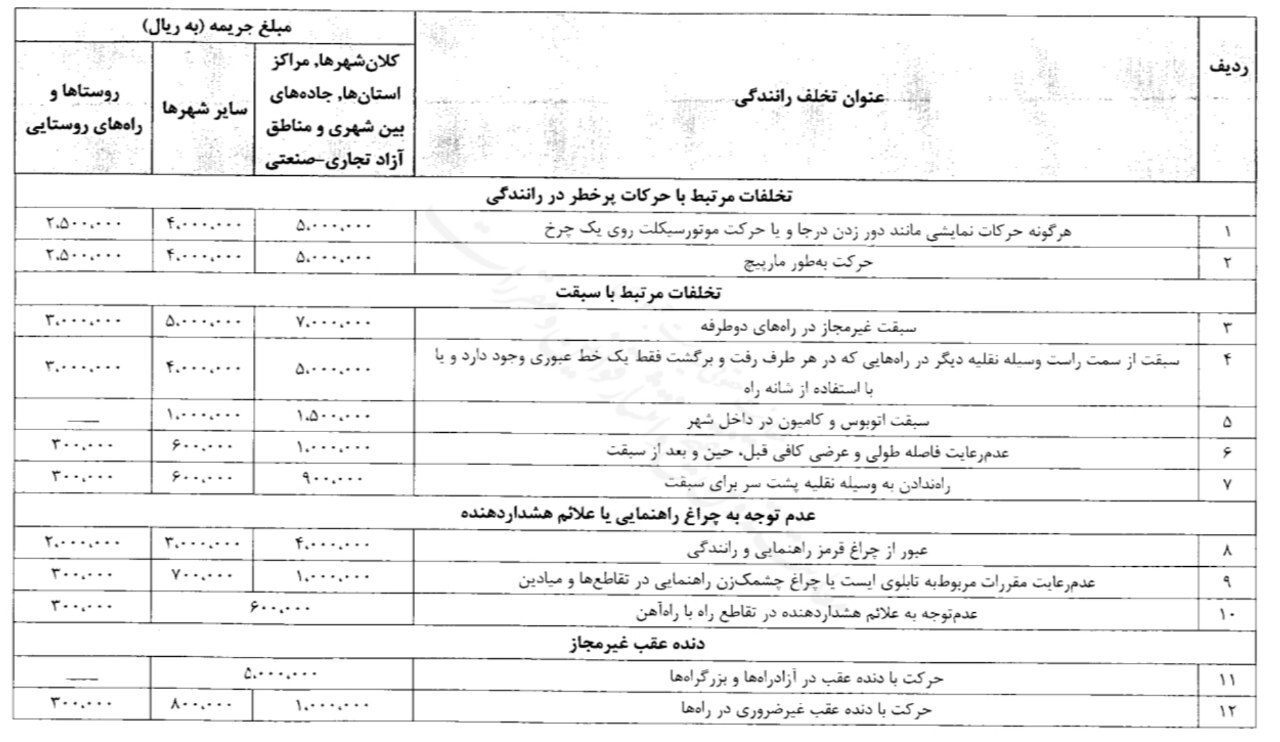 ردیف
عنوان تخلف رانندگی
مبلغ جریمه (به ریال)
کلان‌شهرها, مراکز
استان‌ها, جاده‌های
بین شهری و مناطق
آزاد تجاری-صنعتی
سایر شهرها
روستاها و
راه‌های روستایی
تخلفات مرتبط با حرکات پرخطر در رانندگی
۱ هرگونه حرکات نمایشی مانند دور زدن درجا و یا حرکت موتورسیکلت روی یک چرخ ۵،۰۰۰،۰۰۰ ۴،۰۰۰،۰۰۰ ۲،۵۰۰،۰۰۰
۲ حرکت به‌طور مارپیچ ۵،۰۰۰،۰۰۰ ۴،۰۰۰،۰۰۰ ۲،۵۰۰،۰۰۰
تخلفات مرتبط با سبقت
۳ سبقت غیرمجاز در راه‌های دوطرفه ۷،۰۰۰،۰۰۰ ۵،۰۰۰،۰۰۰ ۳،۰۰۰،۰۰۰
۴ سبقت از سمت راست وسیله نقلیه دیگر در راه‌هایی که در هر طرف رفت و برگشت فقط یک خط عبوری وجود دارد و یا
با استفاده از شانه راه ۵،۰۰۰،۰۰۰ ۴،۰۰۰،۰۰۰ ۳،۰۰۰،۰۰۰
۵ سبقت اتوبوس و کامیون در داخل شهر ۱،۵۰۰،۰۰۰ ۱،۰۰۰،۰۰۰ ——
۶ عدم‌رعایت فاصله طولی و عرضی کافی قبل، حین و بعد از سبقت ۱،۰۰۰،۰۰۰ ۶۰۰،۰۰۰ ۳۰۰،۰۰۰
۷ راه‌ندادن به وسیله نقلیه پشت سر برای سبقت ۹۰۰،۰۰۰ ۶۰۰،۰۰۰ ۳۰۰،۰۰۰
عدم توجه به چراغ راهنمایی یا علائم هشداردهنده
۸ عبور از چراغ قرمز راهنمایی و رانندگی ۴،۰۰۰،۰۰۰ ۳،۰۰۰،۰۰۰ ۲،۰۰۰،۰۰۰
۹ عدم‌رعایت مقررات مربوط‌به تابلوی ایست یا چراغ چشمک‌زن راهنمایی در تقاطع‌ها و میادین ۱،۰۰۰،۰۰۰ ۷۰۰،۰۰۰ ۳۰۰،۰۰۰
۱۰ عدم‌توجه به علائم هشداردهنده در تقاطع راه با راه‌آهن ۶۰۰،۰۰۰ ۳۰۰،۰۰۰
دنده عقب غیرمجاز
۱۱ حرکت با دنده عقب در آزادراه‌ها و بزرگراه‌ها ۵،۰۰۰،۰۰۰ ——
۱۲ حرکت با دنده عقب غیرضروری در راه‌ها ۱،۰۰۰،۰۰۰ ۸۰۰،۰۰۰ ۳۰۰،۰۰۰